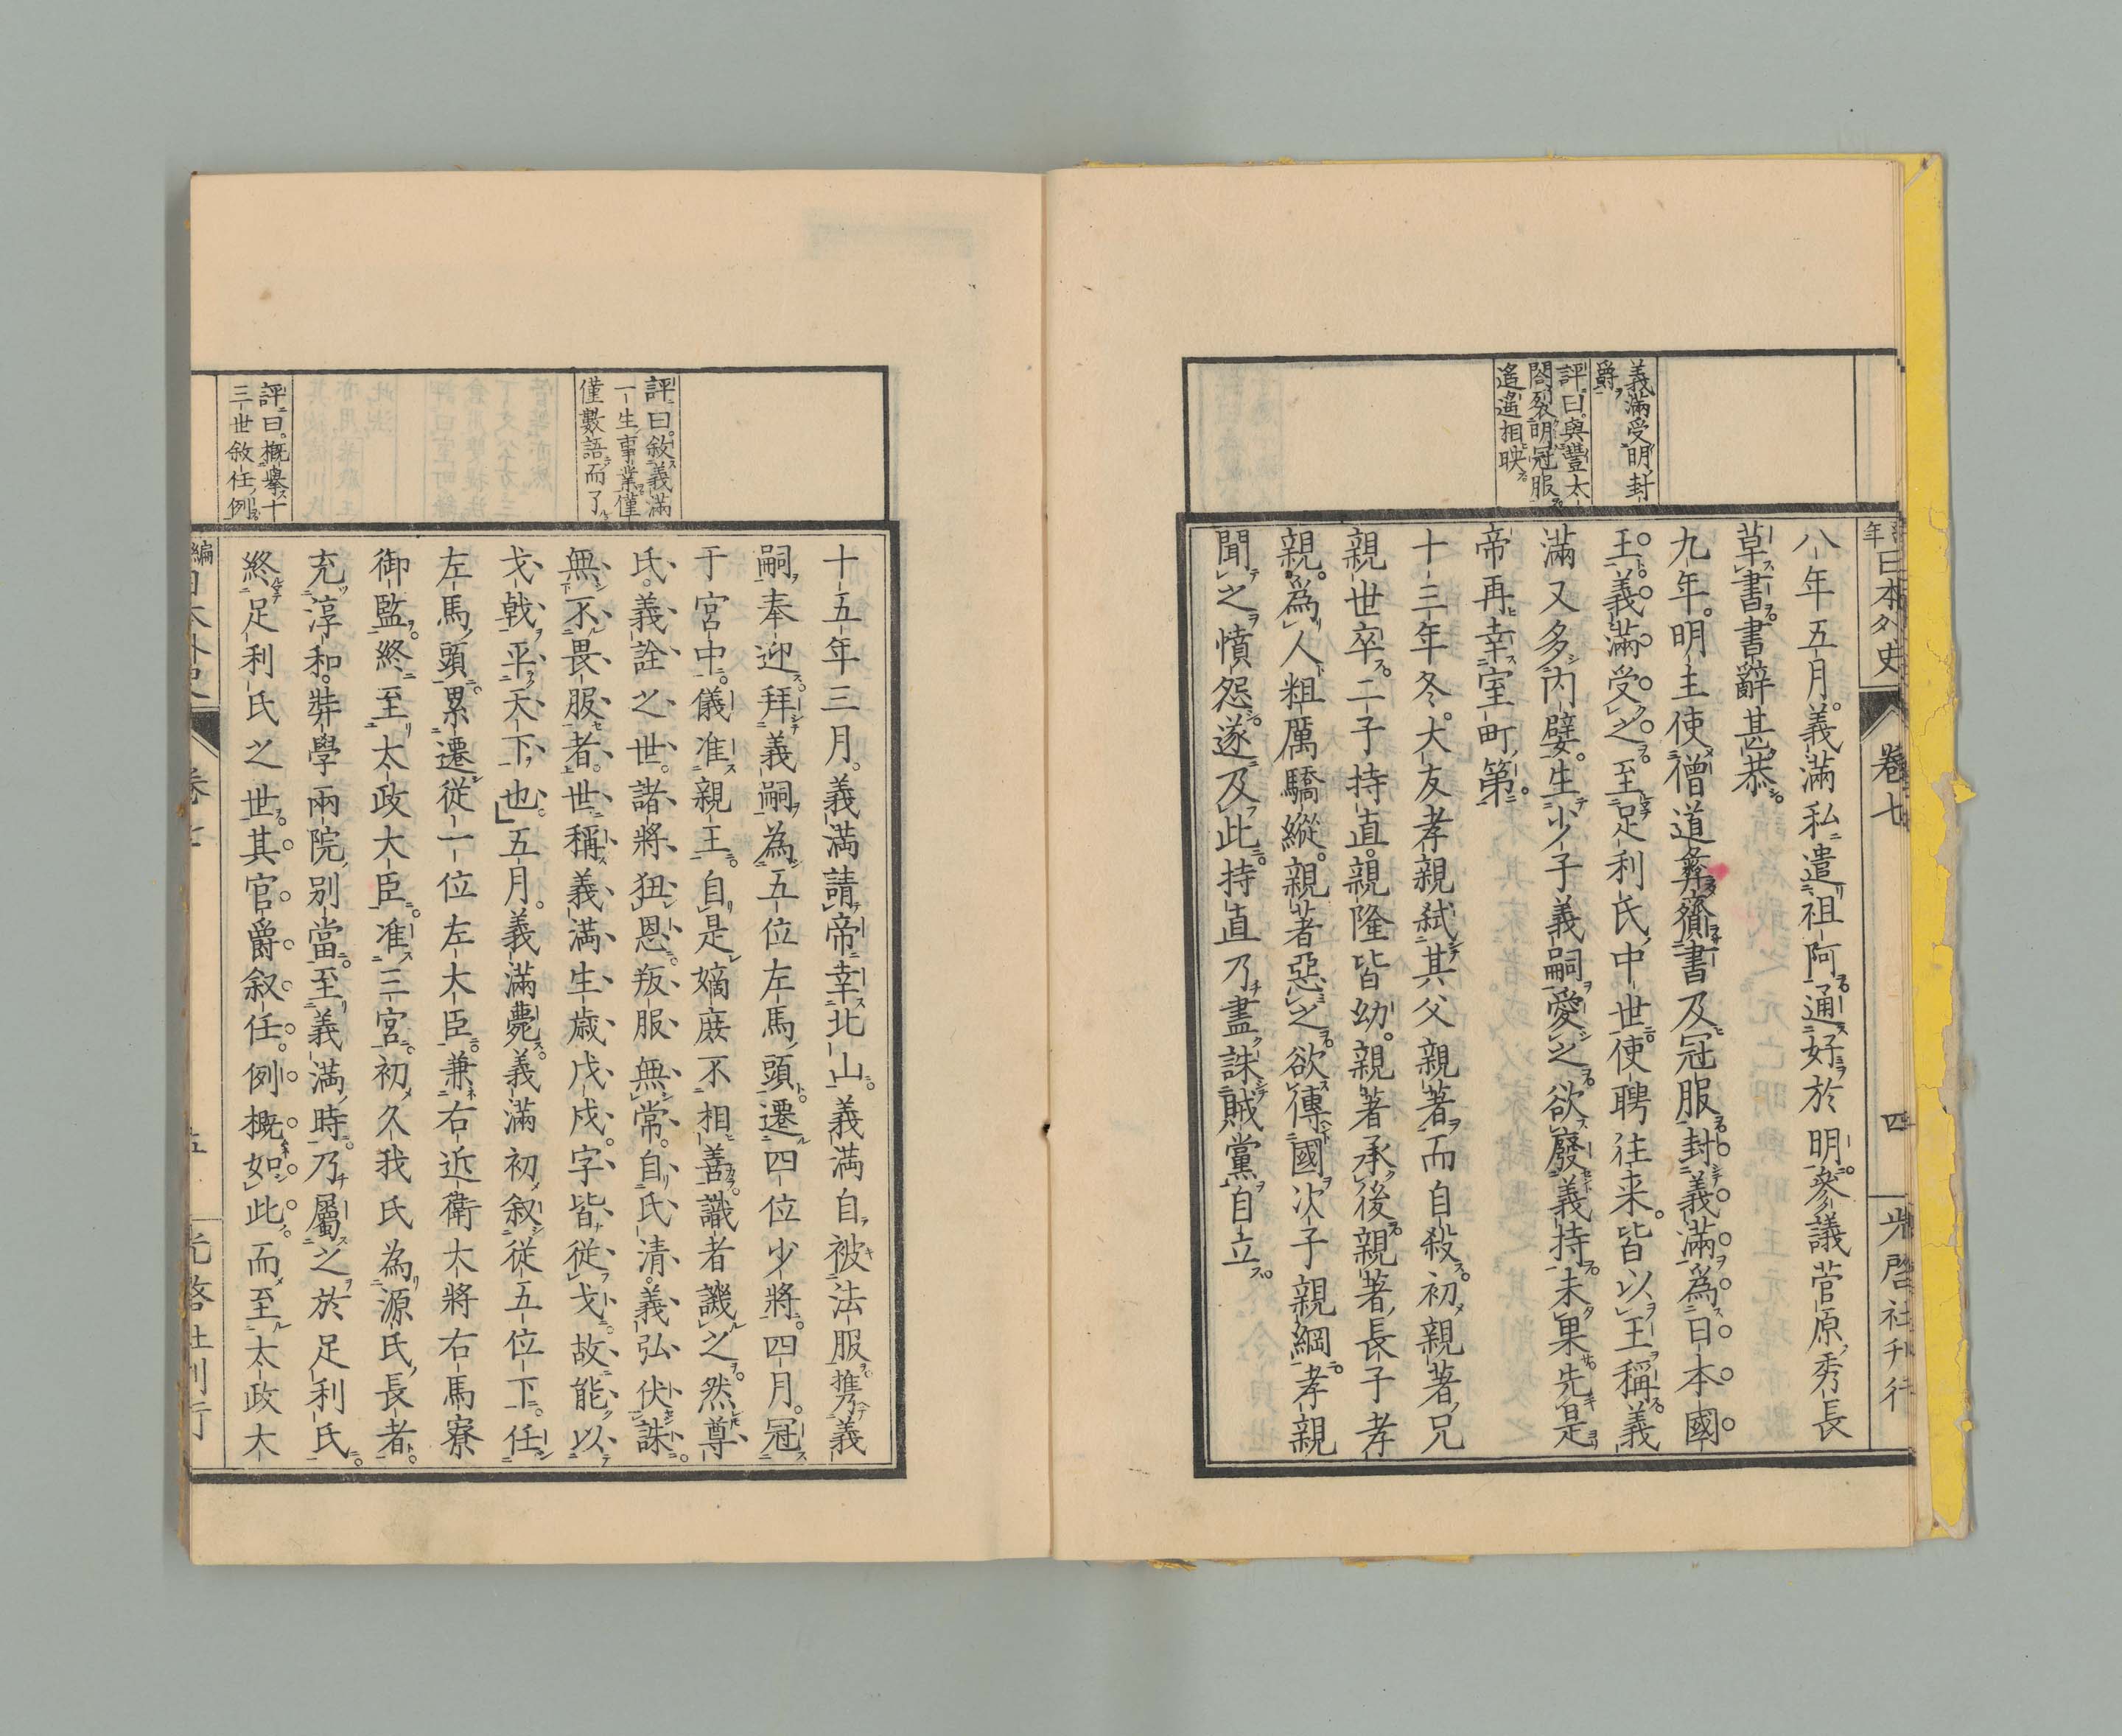 日本外史
卷七
四
光啓社刋行
義滿受明封
爵
評曰。與豐太
閤裂明冠服
遙遙相映
八年五月。義滿私遣祖阿通好於明。參議菅原秀長
草書。書辭甚恭。
九年。明主使僧道彜齎書及冠服。封義滿為日本國
王。義滿受之。至足利氏中世。使聘往来。皆以王稱義
滿又多内嬖。生少子義嗣。愛之。欲廢義持。未果。先是
帝再幸室町第。
十三年冬。大友孝親弑其父親著。而自殺。初親著兄
親世卒。二子持直。親隆皆幼。親著承後。親著長子孝
親。為人粗厲驕縱。親著惡之。欲傳國次子親綱。孝親
聞之憤怨。遂及此。持直乃盡誅賊黨自立。
評曰。敘義滿
一生事業僅
僅數語而了
十五年三月。義滿請帝幸北山。義滿自被法服。携義
嗣。奉迎拜義嗣為五位左馬頭。遷四位少將。四月。冠
于宮中。儀准親王。自是嫡庶不相善。識者譏之。然尊
氏。義詮之世。諸將狃恩。叛服無常。自氏清。義弘伏誅。
無不畏服者。世稱義滿生歳戊戌。字皆從戈。故能以
戈戟平天下也。五月。義滿薨。義滿初叙從五位下。任
左馬頭。累遷從一位左大臣。兼右近衛大將右馬寮
御監。終至太政大臣。准三宮。初久我氏為源氏長者。
充淳和。弉學兩院別當。至義滿時。乃屬之於足利氏。
終足利氏之世。其官爵叙任。例概如此。而至太政大
評曰。概擧十
三世敘任例